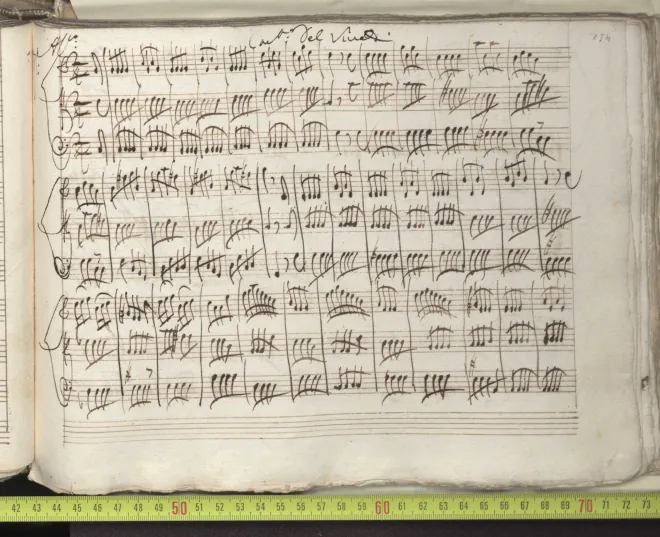 All.º
Del Vivaldi
42 43 44 45 46 47 48 49 50 51 52 53 54 55 56 57 58 59 60 61 62 63 64 65 66 67 68 69 70 71 72 73